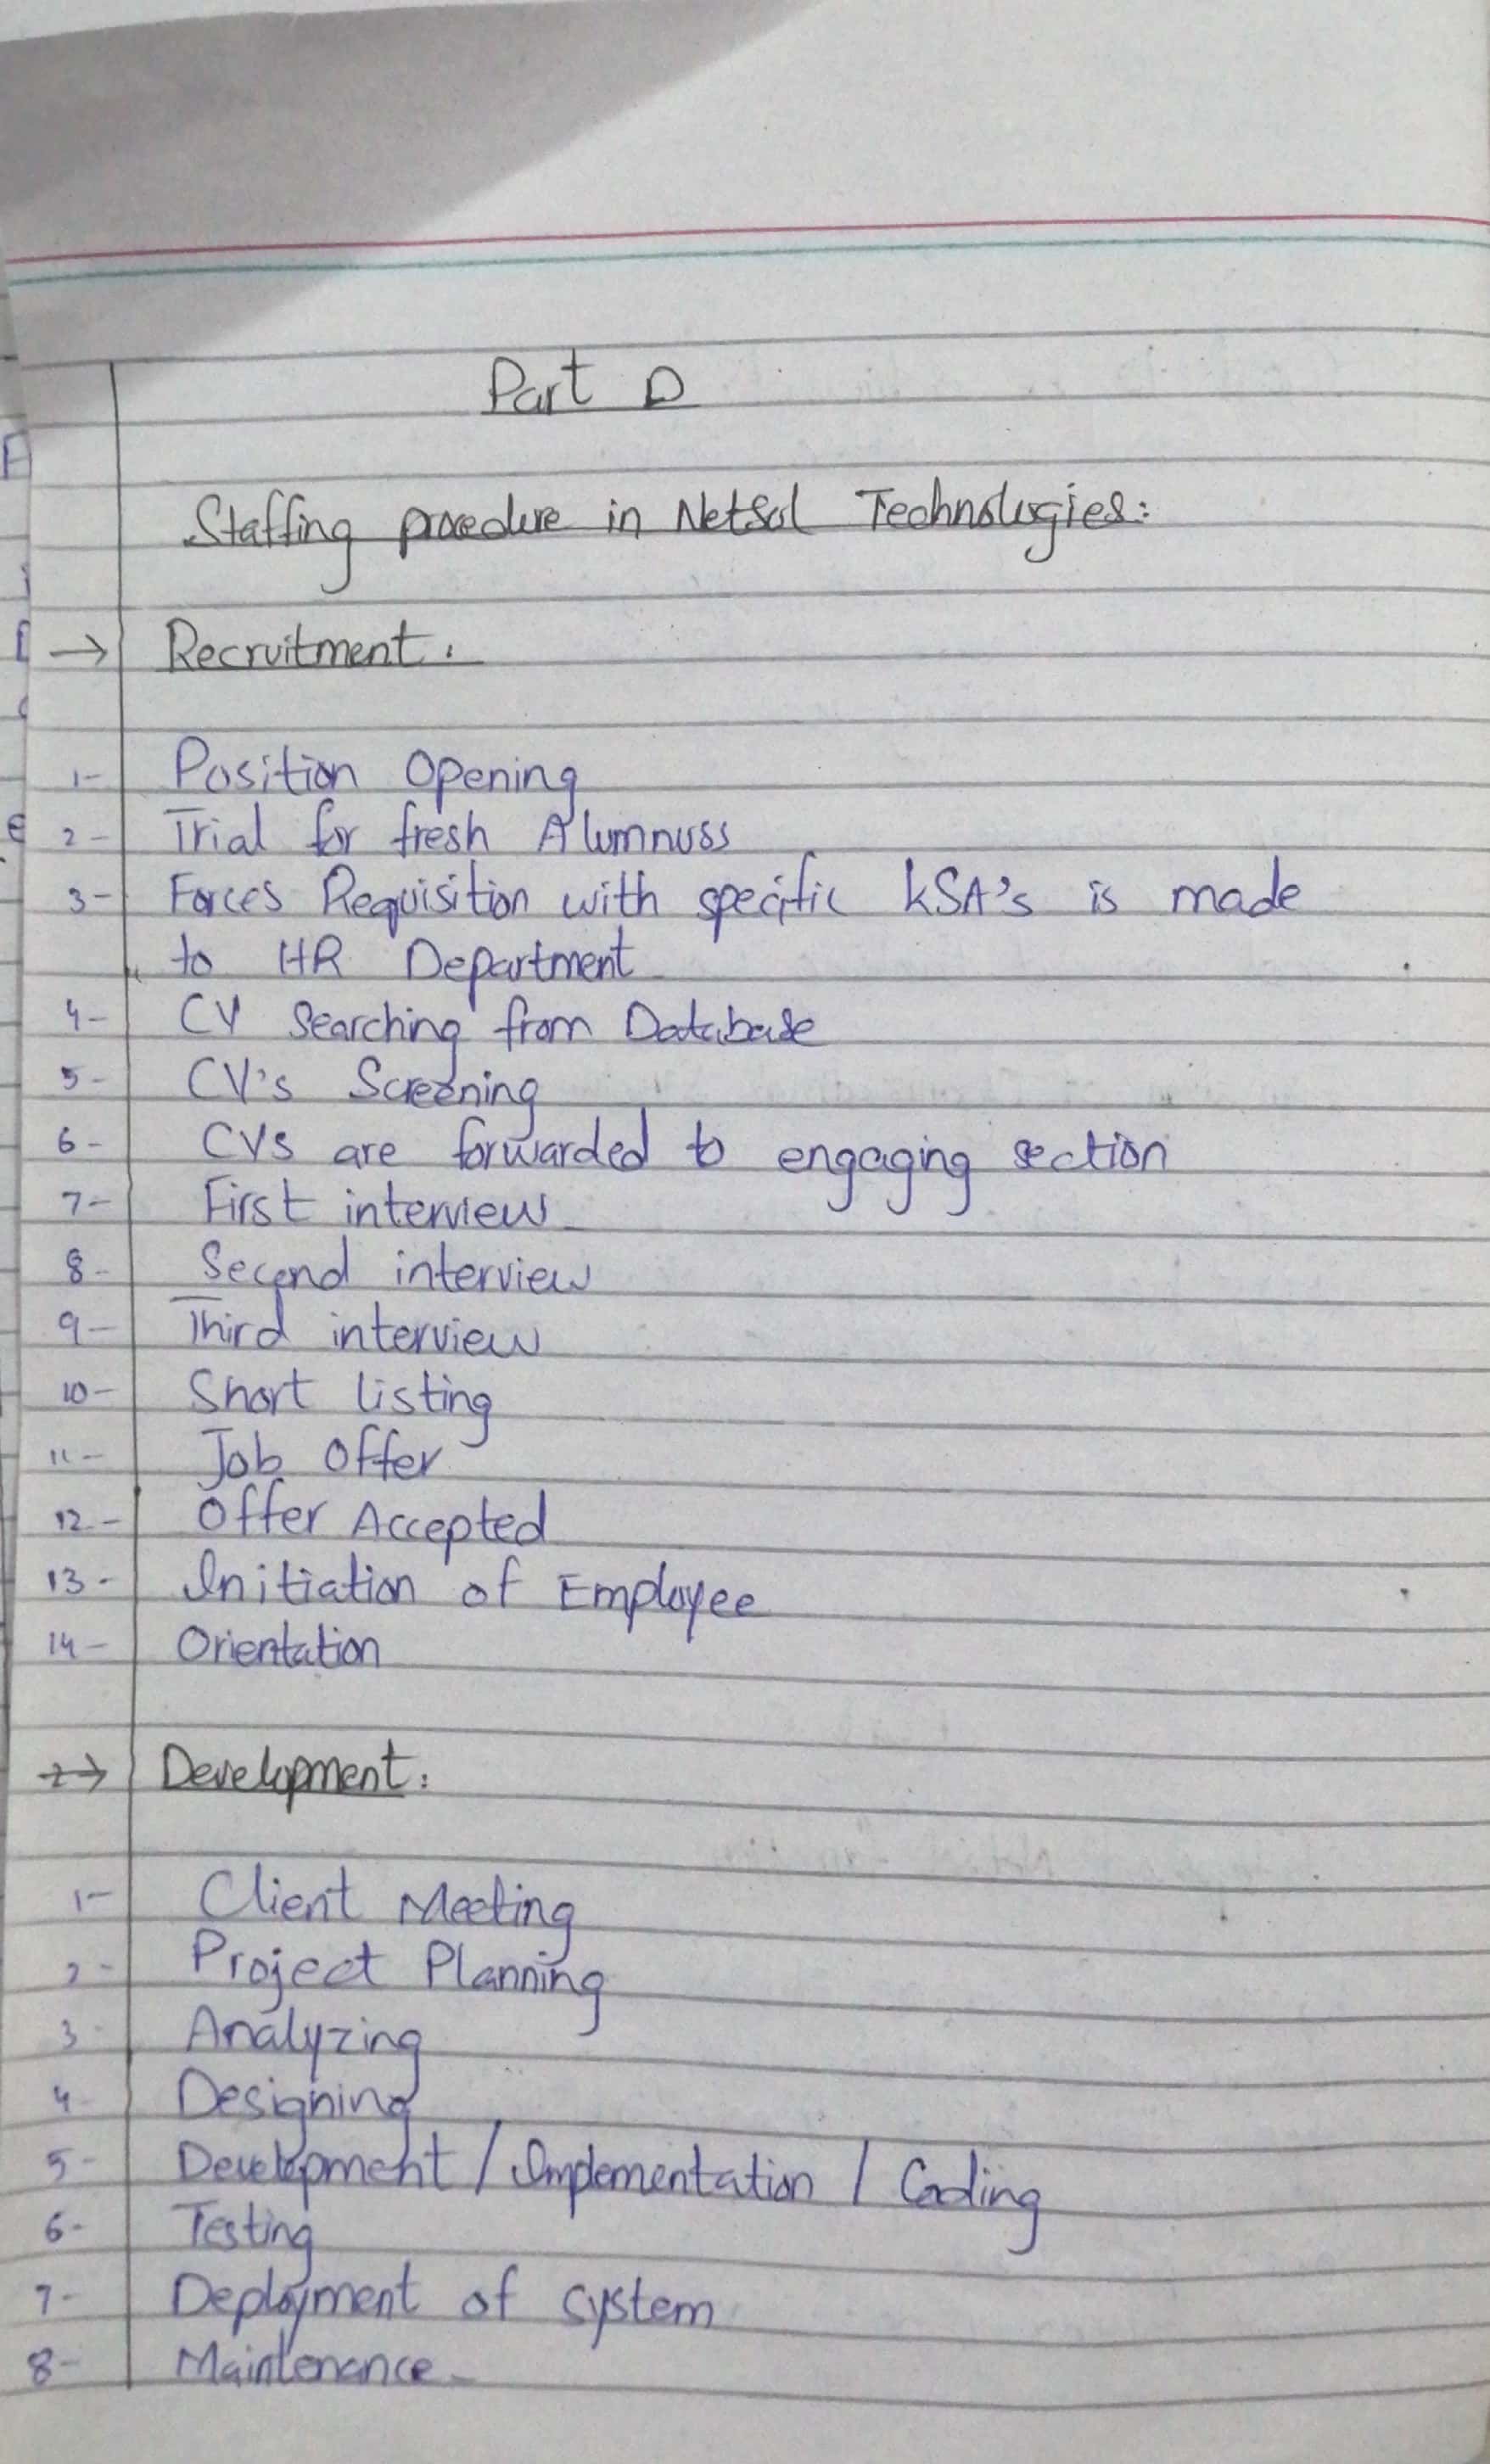 Part D
Staffing procedure in NetSol Technologies:
→ Recruitment.
1- Position Opening
2- Trial for fresh Alumnuss
3- Forces Requisition with specific KSA's is made
to HR Department
4- CV Searching from Database
5- CV's Screening
6- CVs are forwarded to engaging section
7- First interview
8- Second interview
9- Third interview
10- Short listing
11- Job Offer
12- Offer Accepted
13- Initiation of Employee
14- Orientation
→ Development:
1- Client Meeting
2- Project Planning
3- Analyzing
4- Designing
5- Development / Implementation / Coding
6- Testing
7- Deployment of system
8- Maintenance